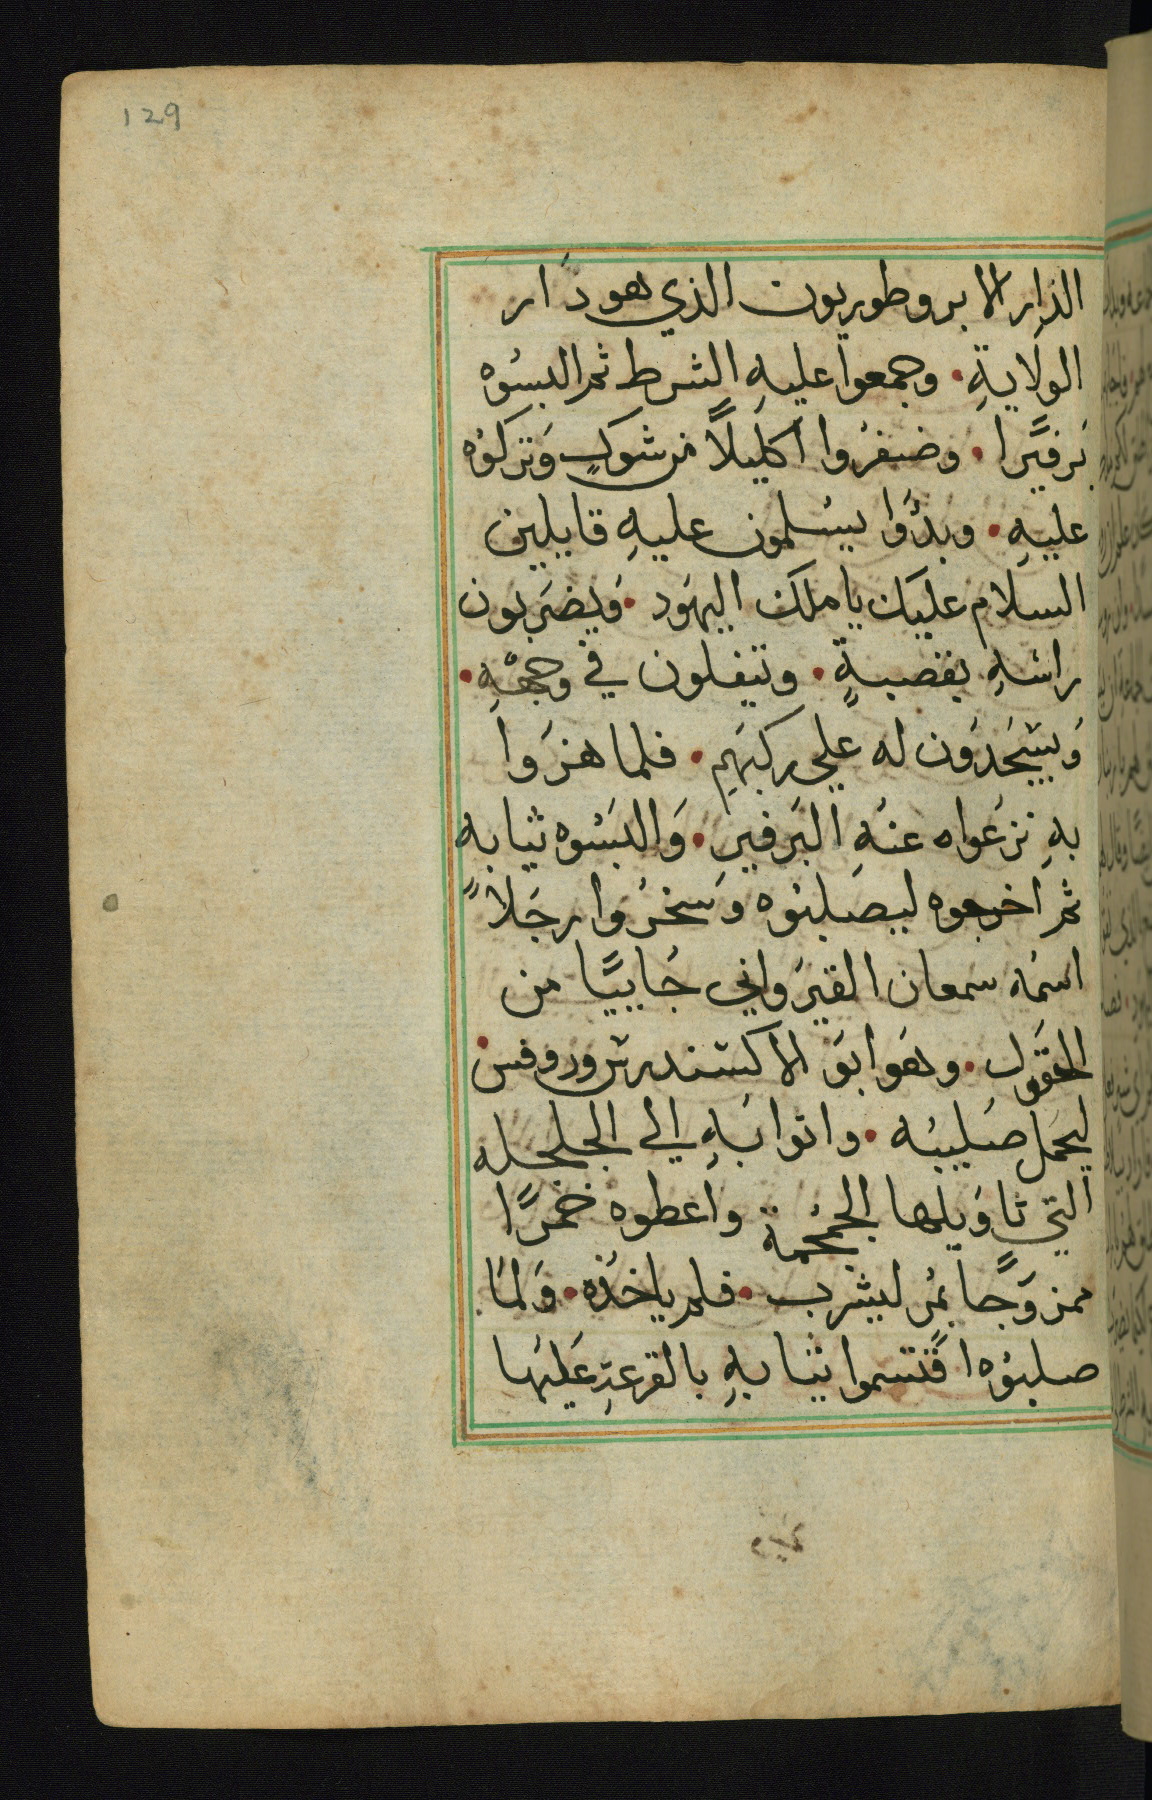 129
الدار الابروطوريون الذي هو دار
الولايةِ. وجمعوا عليهِ الشرط ثم البسُوه
بَرفيًرا. وضفرُوا اكليلًا من شوكٍ وَتركوُه
عليهِ. وبدُوا يسُلمون عليهِ قايلين
السلام عليك يا ملك اليهَود. وَيضرَبون
راسَهِ بقصبةٍ. وتيفلون في وجههِ.
وَيسَجُدوَن له علي ركبهَمِ. فلما هزَوا
بهِ نزعَواه عنهُ البَرفيرِ. وَالبسَوُه ثيابه
ثم اخرجوه ليصَلبوُه وسَخرُوا رجَلاً
اسمُه سمعان القيرَواني جَاييًا من
الحقَول. وهَو ابوَ الاكسَندرس وروفس
ليحَمل صَليبُه. واتوا بَهِ الي الجلجله
التي تاوَيلها الجمُجمة واعطوه خمرًا
ممزوَجًا بمُر ليشرب. فلم ياخذُه. وَلما
صلبوُه اقتَسموا ثيابهِ بالقرعةِ عَليها